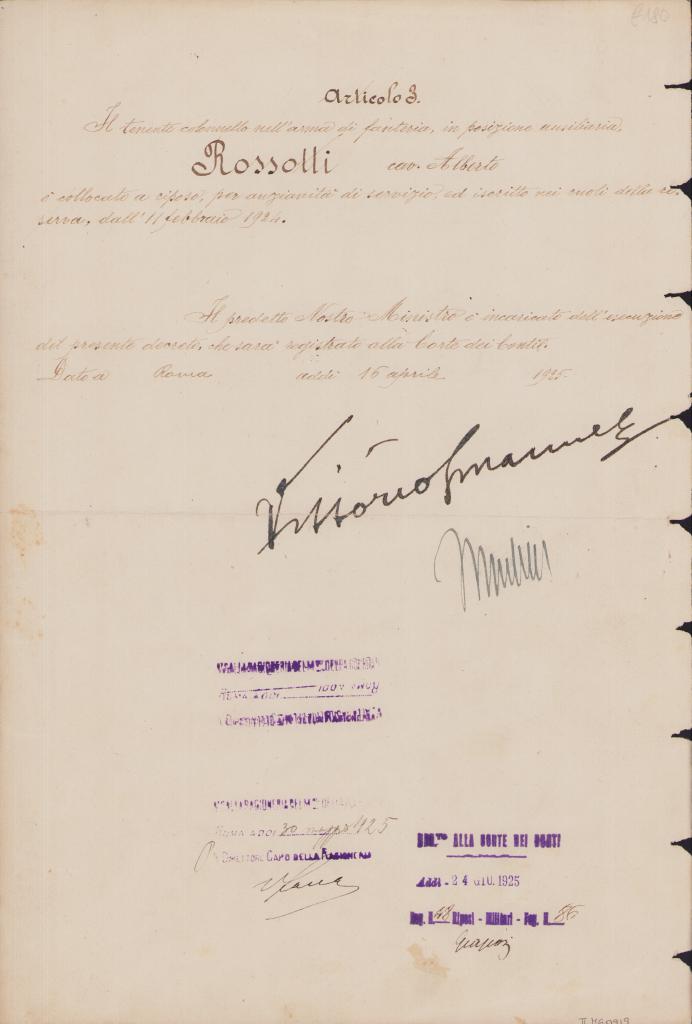 £180
Articolo 3.
Il tenente colonnello nell'arma di fanteria, in posizione ausiliaria,
Rossotti cav. Alberto
è collocato a riposo, per anzianità di servizio, ed iscritto nei ruoli della ri-
serva, dall'11 febbraio 1924.
Il predetto Nostro Ministro è incaricato dell'esecuzione
del presente decreto, che sarà registrato alla Corte dei Conti.
Dato a Roma addì 16 aprile 1925.
Vittorio Emanuele
Mussolini
ROMA ADDI
ROMA ADDI 1925
IL DIRETTORE CAPO DELLA RAGIONERIA
REG.TO ALLA CORTE DEI CONTI
ADDI - 24 GIU. 1925
Reg. N. 48 Riposi - Militari - Fog. N. 86